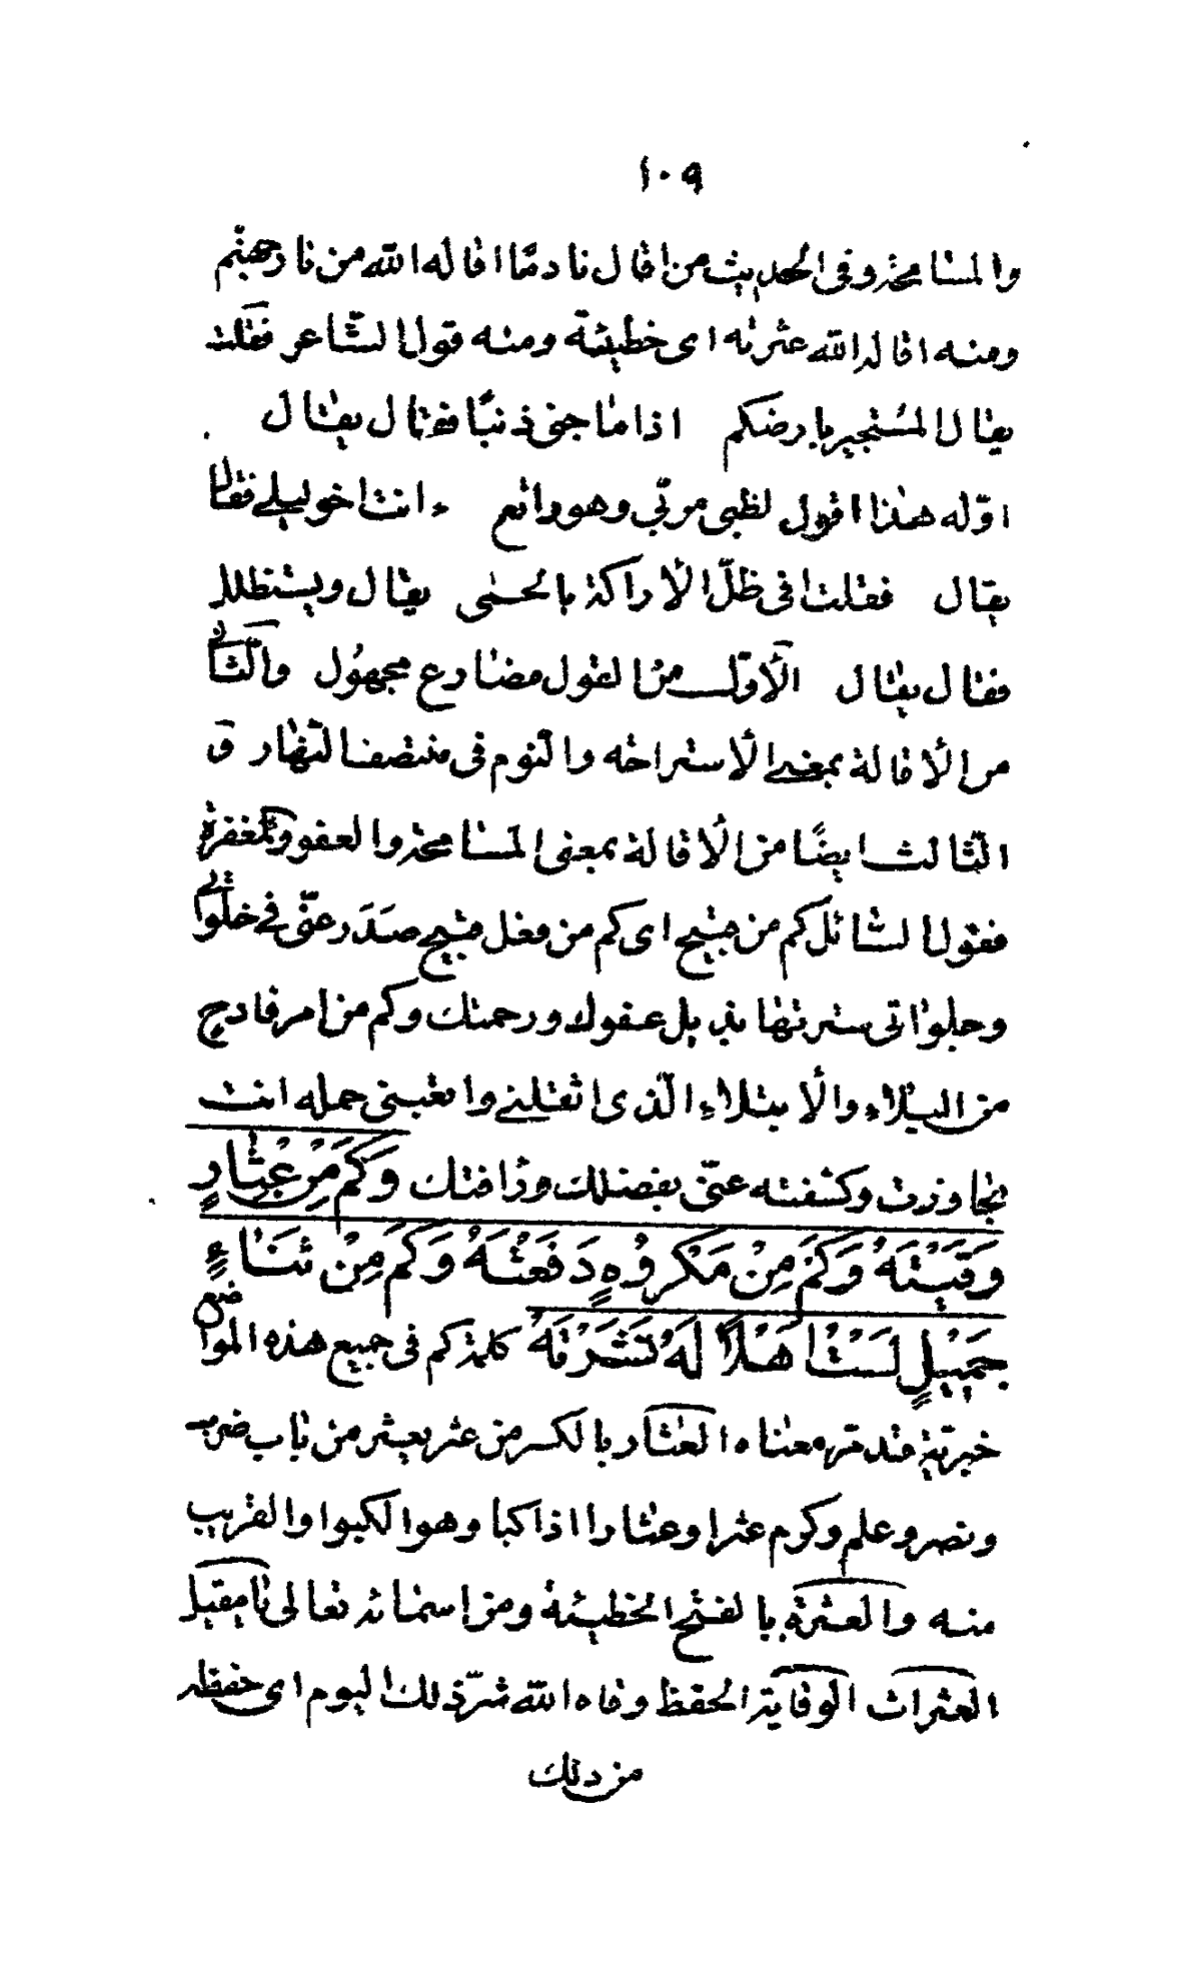 ١٠٩
والمسامحة وفی الحدیث من اقال نادمًا اقاله الله من نار جهنّم
ومنه اقاله الله عثرته ای خطیئته ومنه قول الشّاعر فقلت
یقال المُستجیر بارضکم اذا ما جنی ذنبًا فقال یقال
اوّله هذا اقول لظبی مرّ بی وهو راتع ءانت اخو لیلی فقال
یقال فقلت افی ظلّ الأراکة بالحمی یقال ویستظلل
فقال یقال الأوّل من القول مضارع مجهُول والثّانی
من الأقالة بمعنی الأستراحة والنّوم فی منتصف النّهار و
الثّالث ایضًا من الأقالة بمعنی المسامحة والعفو والمغفرة
فقول السّائل کم من قبیح ای کم من فعل قبیح صَدَر عنّی فی خلواتی
وجلواتی سترتها بذیل عفوك ورحمتك وکم من امر فادح
من البلاء والأبتلاء الّذی اثقلنی واتعبنی حمله انت
تجاوزت وکشفته عنّی بفضلك ورأفتك وَکَمْ مِنْ عِثٰارٍ
وَقَیْتَهُ وَکَمْ مِنْ مَکْرُوُهٍ دَفَعْتَهُ وَکَمْ مِنْ ثَنٰاءٍ
جَمیْلٍ لَسْتُ اَهْلاً لَهُ نَشَرْتَهُ کلمة کم فی جمیع هذه المواضع
خبریّة قد مرّ معناه العثار بالکسر من عثر یعثر من باب ضرب
ونصر وعلم وکرم عثرا وعثارا اذا کبا وهو الکبوا والقریب
منه والعثرة بالفتح الخطیئة ومن اسمائه تعالی یا مقیل
العثرات الوقایة الحفظ وقاه الله شرّ ذلك الیوم ای حفظه
من ذلك